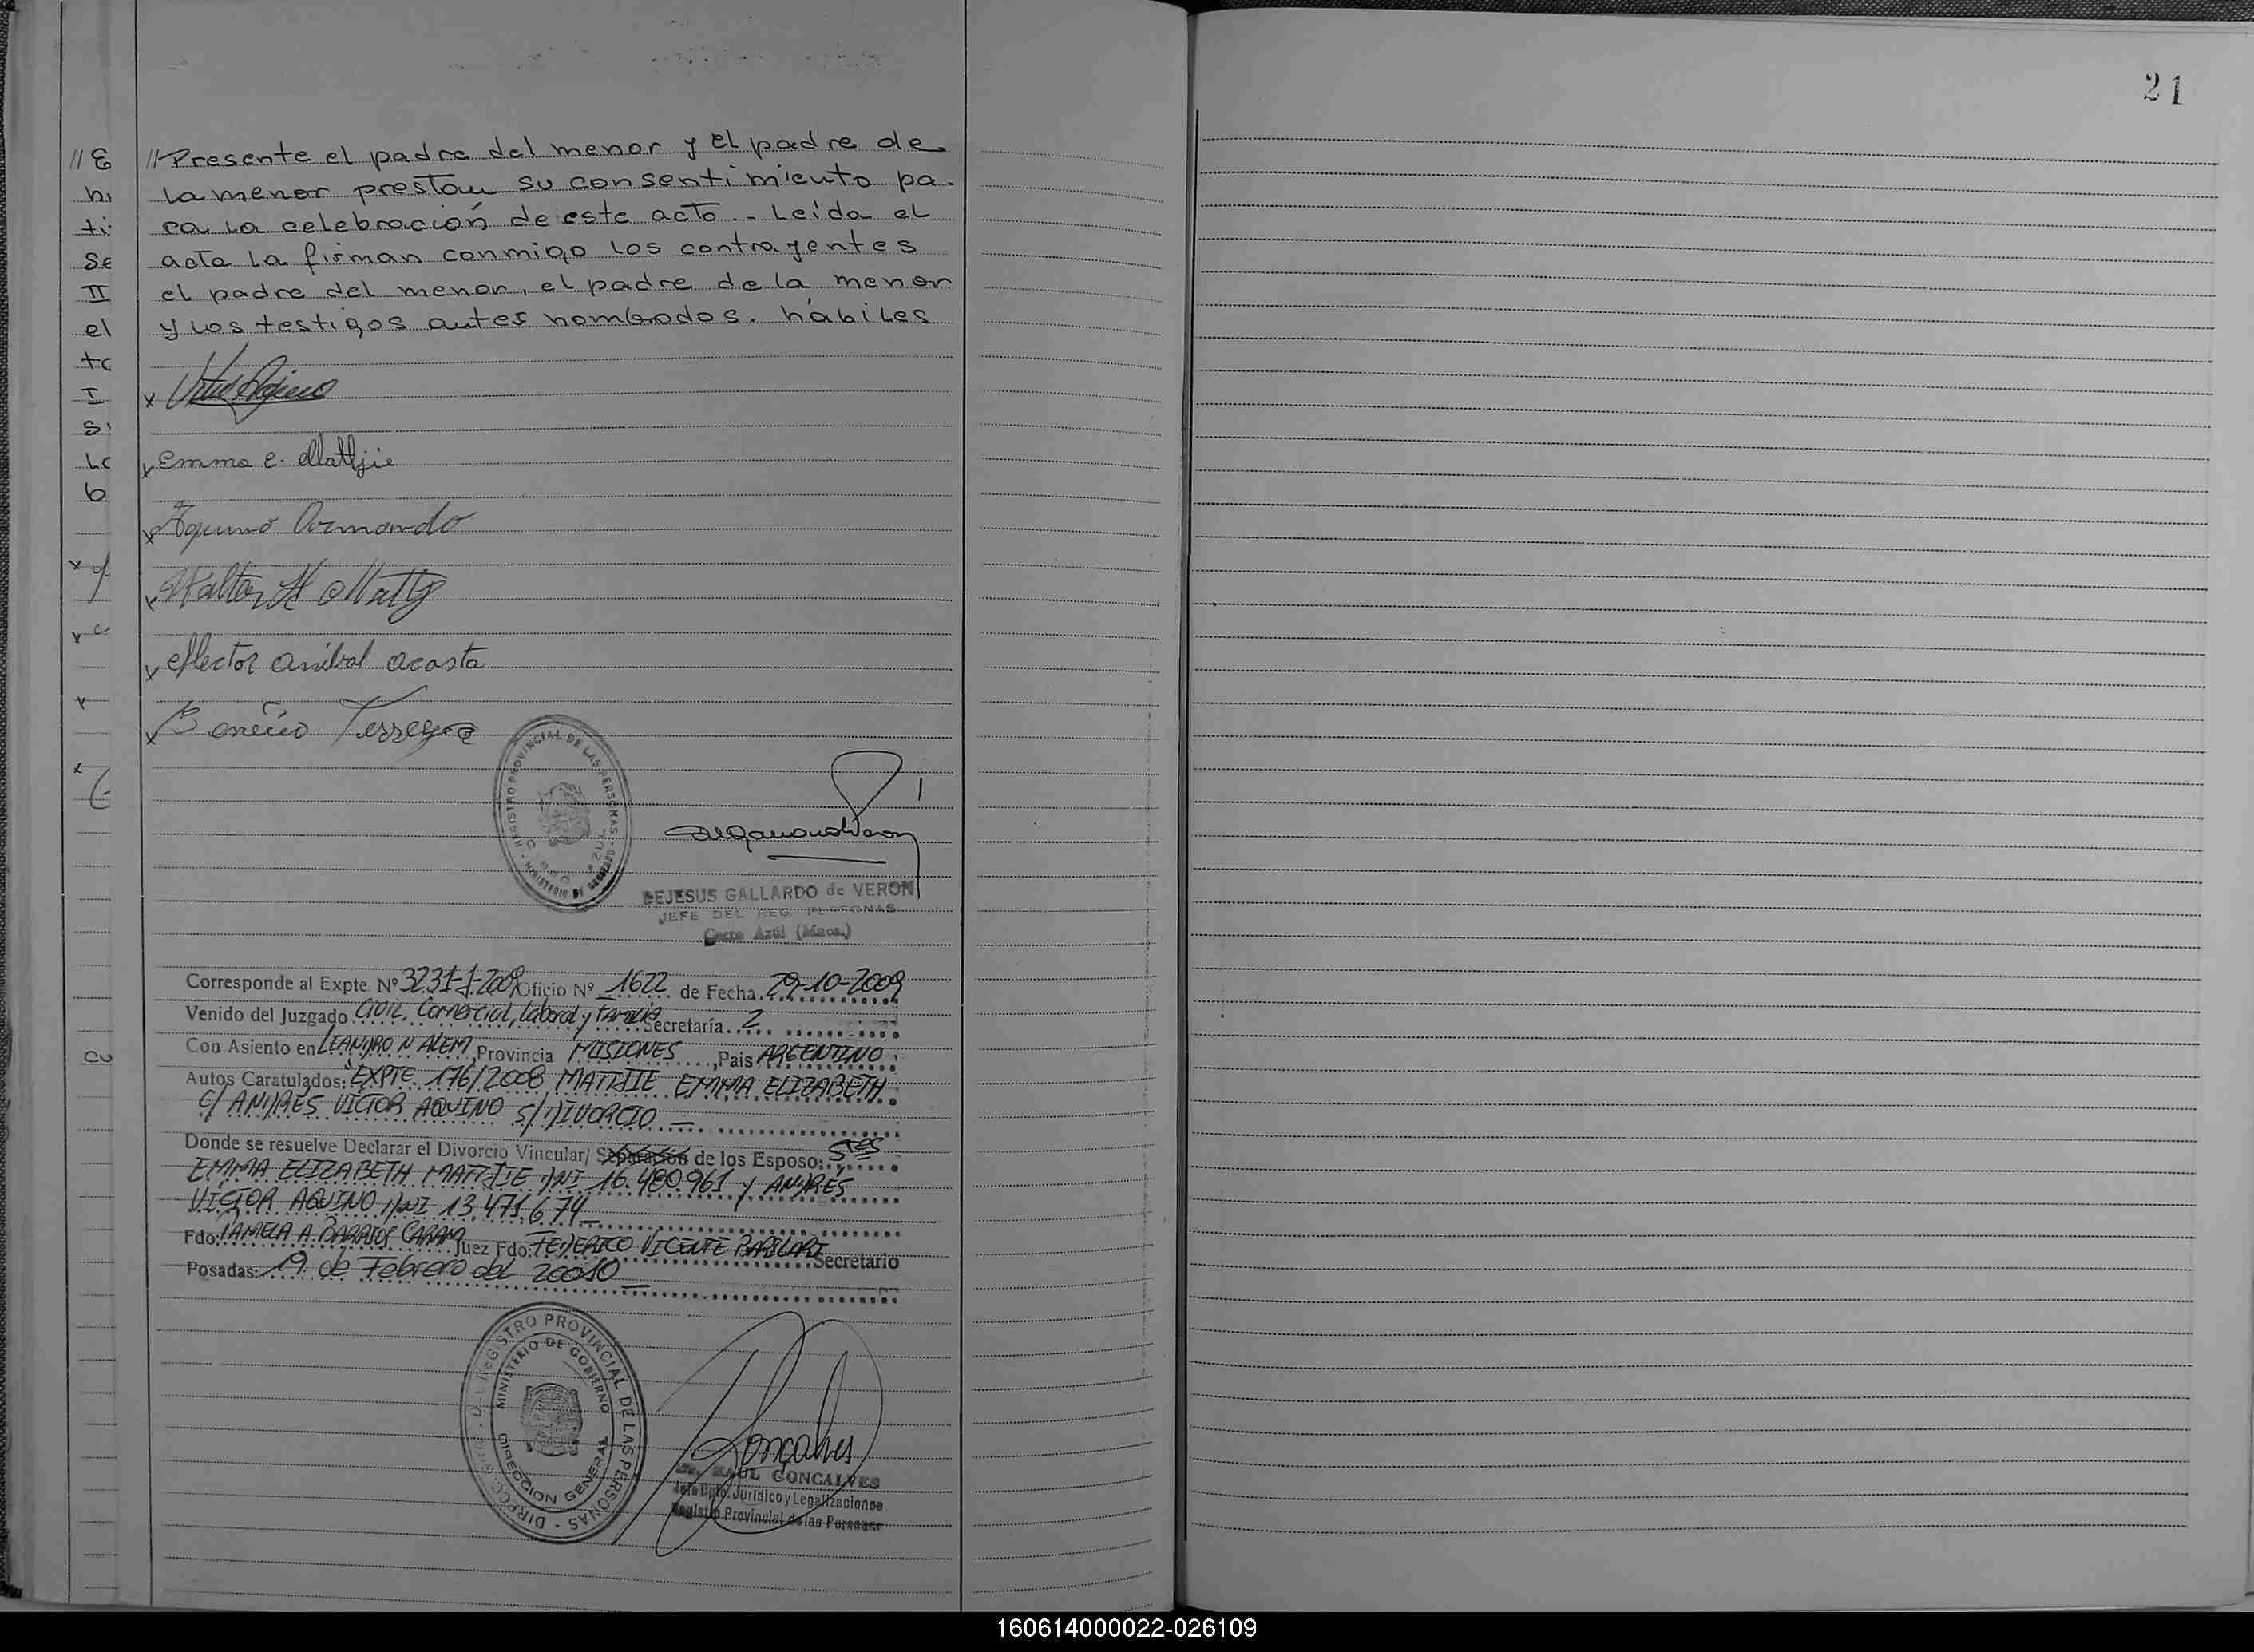 21
//Presente el padre del menor y el padre de
la menor prestan su consentimiento pa-
ra la celebración de este acto.- Leída el
acta la firman conmigo los contrayentes
el padre del menor, el padre de la menor
y los testigos antes nombrados. hábiles
//E
ti
Se
II
el
to
I
x
x Emma e. Mattjie
x Aquino Armando
x Walter H
x Hector anibal acosta
x
REGISTRO PROVINCIAL DE LAS PERSONAS - MINISTERIO DE GOBIERNO
DEJESUS GALLARDO de VERON
JEFE DEL REG. PERSONAS
Cerro Azúl (Mnes.)
Corresponde al Expte. Nº 3231-J-2009 Oficio Nº 1622 de Fecha 29-10-2009
Venido del Juzgado CIVIL, Comercial, laboral y familia Secretaría 2
Con Asiento en LEANDRO N ALEM, Provincia MISIONES, Pais ARGENTINO
Autos Caratulados: "EXPTE. 176/2008 MATTJIE EMMA ELIZABETH
C/ ANDRES VICTOR AQUINO S/ DIVORCIO
Donde se resuelve Declarar el Divorcio Vincular/ Separación de los Esposo: STES
EMMA ELIZABETH MATTJIE DNI 16.480.961 y ANDRÉS
VICTOR AQUINO DNI 13.471.674
Fdo: PAMELA A. BARRIOS CARAM Juez Fdo: FEDERICO VICENTE BARILARI Secretario
Posadas: 19 de Febrero del 20010
REGISTRO PROVINCIAL DE LAS PERSONAS
MINISTERIO DE GOBIERNO
DIRECCION GENERAL
Gonçalves
RAUL GONCALVES
Jefe Dpto. Jurídico y Legalizaciones
Registro Provincial de las Personas
160614000022-026109